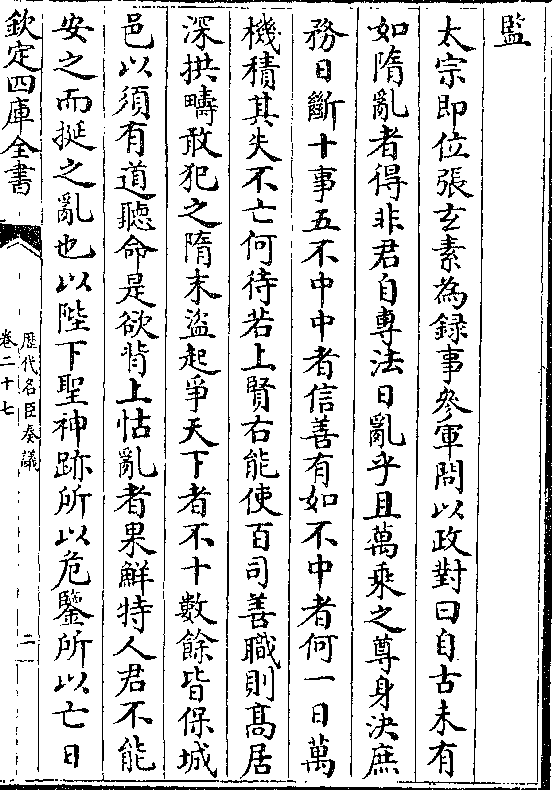 監
太宗即位張玄素為録事參軍問以政對曰自古未有
如隋亂者得非君自專法日亂乎且萬乘之尊身決庶
務日斷十事五不中中者信善有如不中者何一日萬
機積其失不亡何待若上賢右能使百司善職則髙居
深拱疇敢犯之隋末盜起爭天下者不十數餘皆保城
邑以須有道聽命是欲背上怙亂者果鮮特人君不能
安之而挻之亂也以陛下聖神跡所以危鑒所以亡日
欽定四庫全書
歷代名臣奏議
卷二十七
二